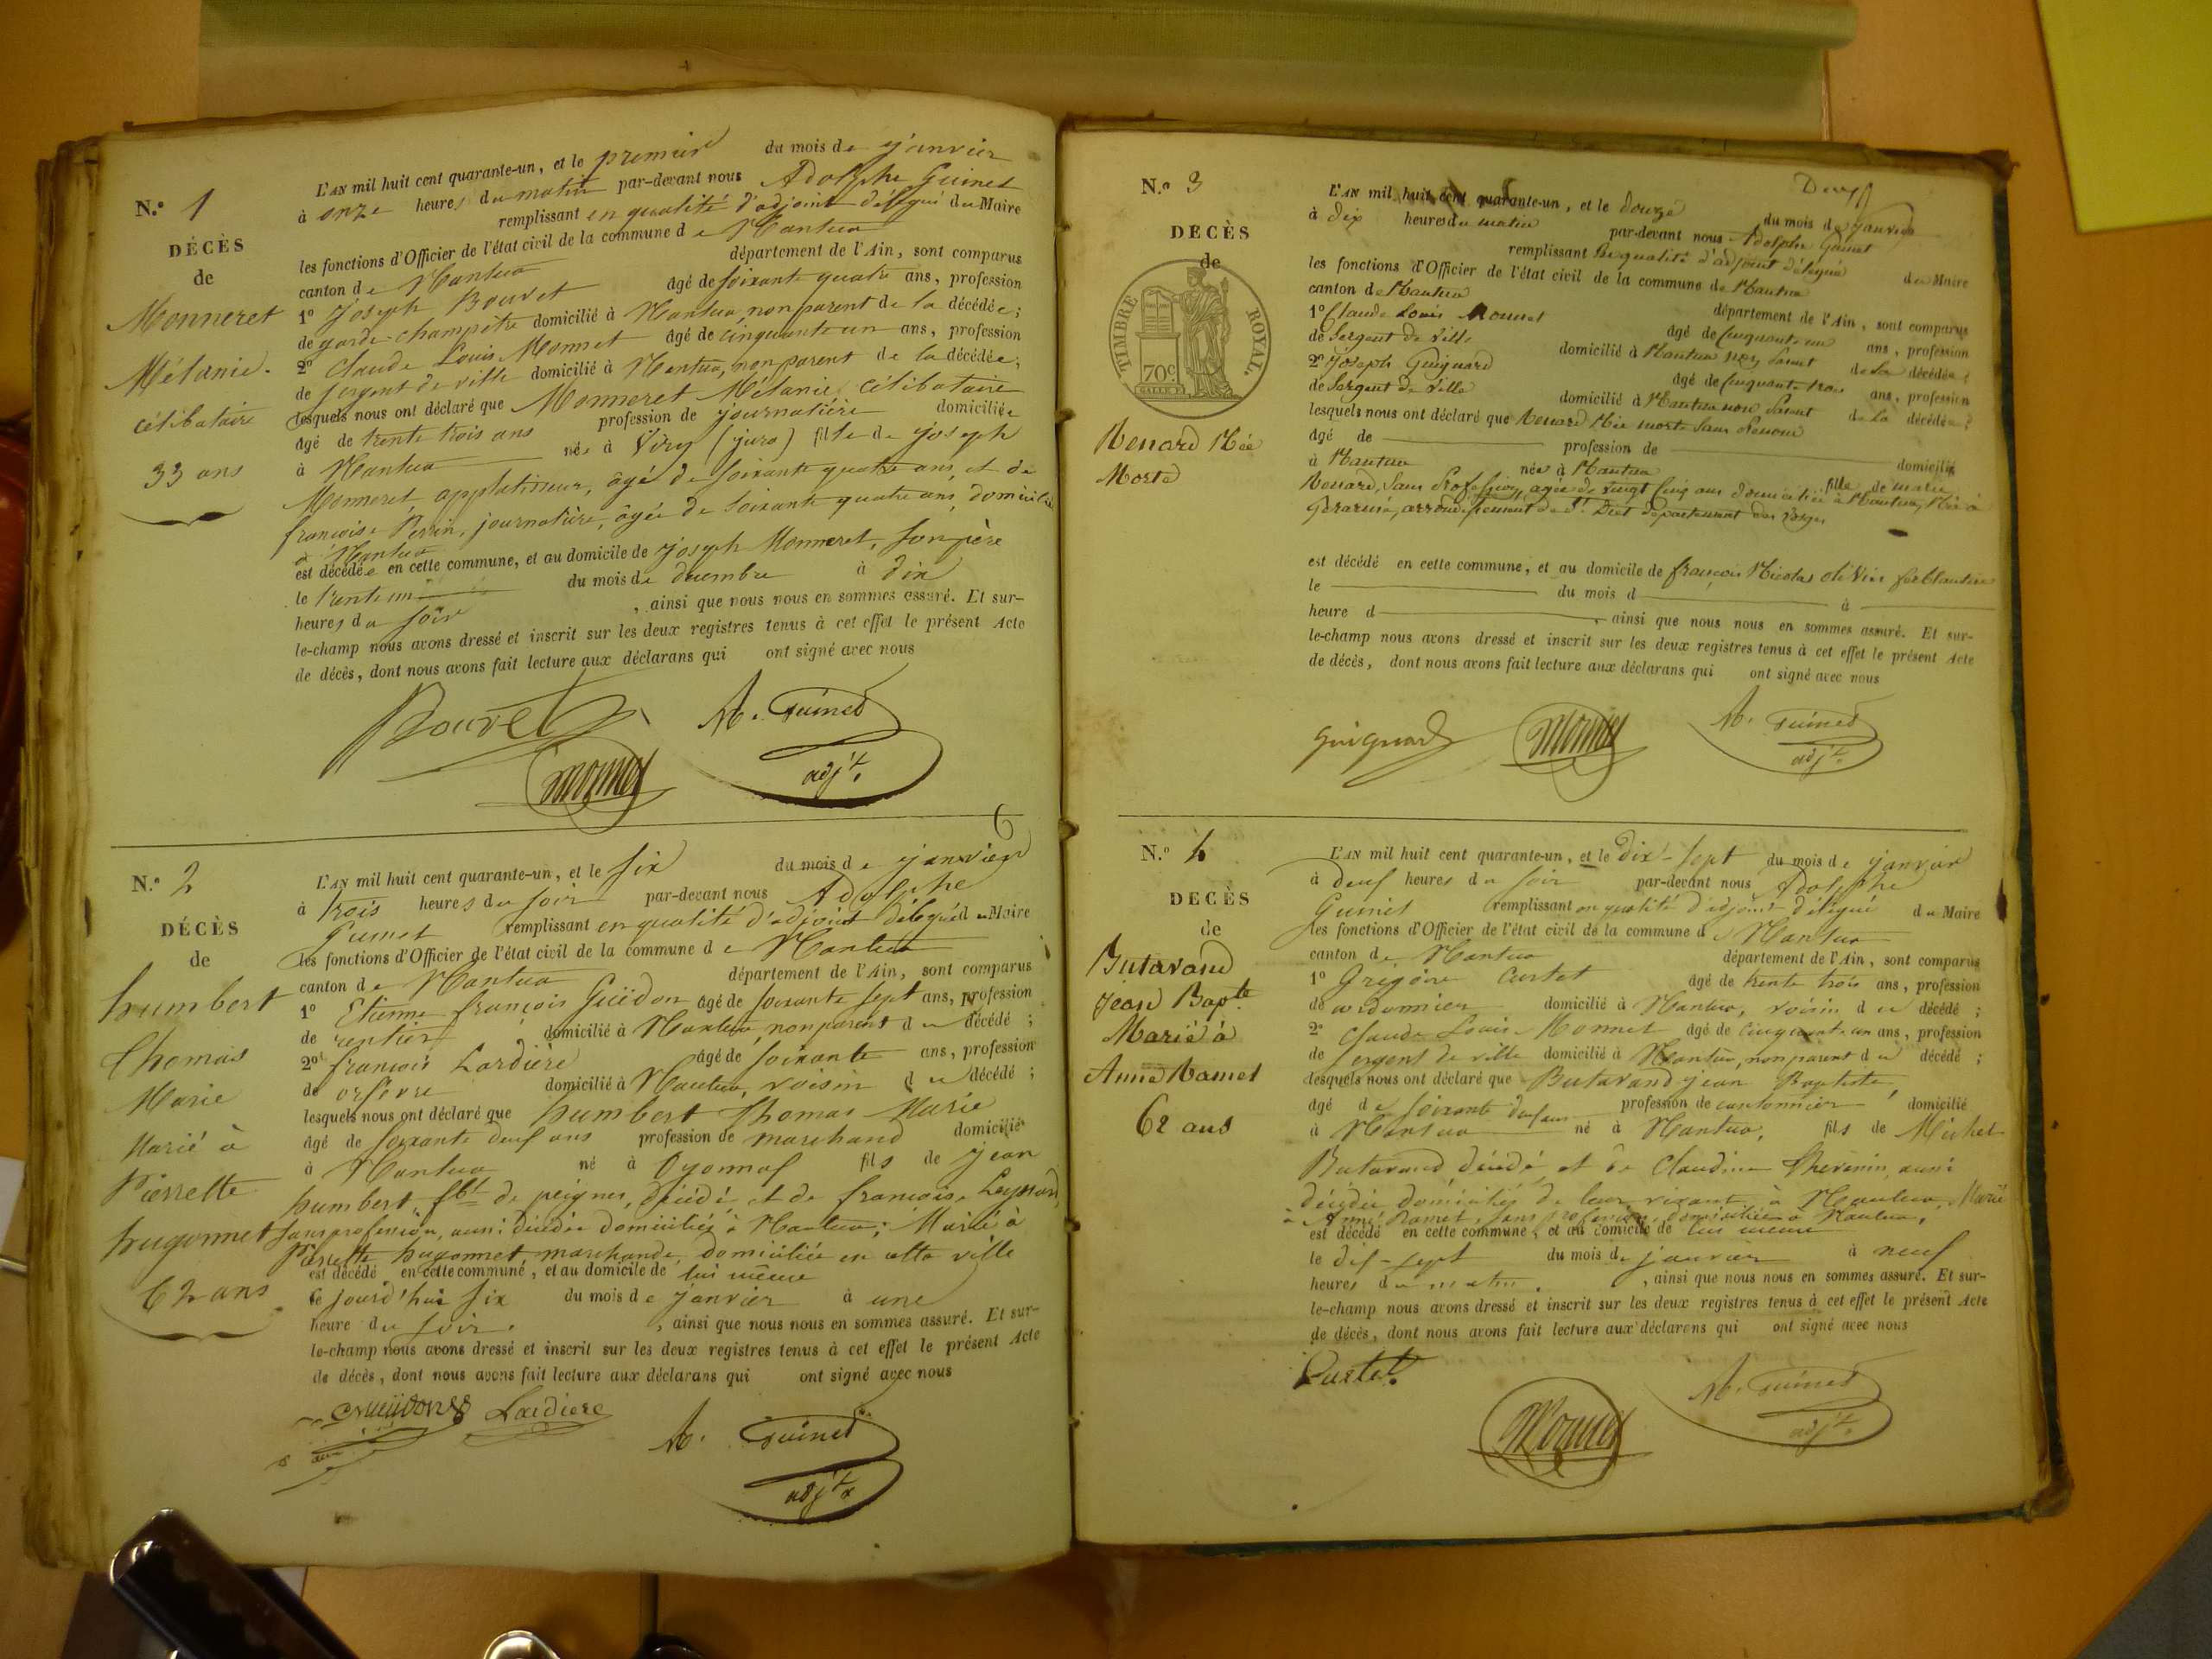 N.o 1
DÉCÈS
de
Monneret
Mélanie.
célibataire
33 ans
L'AN mil huit cent quarante-un, et le premier du mois de janvier
à onze heures du matin par-devant nous Adolphe Guinet
remplissant en qualité d'adjoint délégué du Maire
les fonctions d'Officier de l'état civil de la commune de Mantua
canton de Mantua département de l'Ain, sont comparus
1o Joseph Bouvet âgé de soixante quatre ans, profession
de garde-champêtre domicilié à Mantua, non parent de la décédée;
2o Claude Louis Monnet âgé de cinquante un ans, profession
de sergent de ville domicilié à Mantua, non parent de la décédée;
lesquels nous ont déclaré que Monneret Mélanie, célibataire
âgé de trente trois ans profession de journalière domiciliée
à Mantua née à Viry (jura) fille de joseph
Monneret, applatisseur, âgé de soixante quatre ans, et de
françoise Perrin, journalière, âgée de soixante quatre ans, domiciliés
à Mantua
est décédée en cette commune, et au domicile de joseph Monneret, son père
le trente un du mois de décembre à dix
heures du soir, ainsi que nous nous en sommes assuré. Et sur-
le-champ nous avons dressé et inscrit sur les deux registres tenus à cet effet le présent Acte
de décès, dont nous avons fait lecture aux déclarans qui ont signé avec nous
Bouvet A. Guinet
Monnet adjt.
6
N.o 2
DÉCÈS
de
humbert
Thomas
Marie
Marié à
Pierrette
hugonnet
62 ans
L'AN mil huit cent quarante-un, et le six du mois de janvier
à trois heures du soir par-devant nous Adolphe
Guinet remplissant en qualité d'adjoint délégué du Maire
les fonctions d'Officier de l'état civil de la commune de Mantua
canton de Mantua département de l'Ain, sont comparus
1o Etienne françois Guidon âgé de soixante sept ans, profession
de rentier domicilié à Mantua, non parent du décédé;
2o françois Lardière âgé de soixante ans, profession
de orfèvre domicilié à Mantua, voisin du décédé;
lesquels nous ont déclaré que humbert Thomas Marie
âgé de soixante deux ans profession de marchand domicilié
à Mantua né à Oyonnax fils de jean
humbert, fbt de peignes, décédé, et de françoise
sans profession, aussi décédée domiciliés à Mantua; Marié à
Pierrette hugonnet marchande, domiciliée en cette ville
est décédé en cette commune, et au domicile de lui même
le jourd'hui six du mois de janvier à une
heure du soir, ainsi que nous nous en sommes assuré. Et sur-
le-champ nous avons dressé et inscrit sur les deux registres tenus à cet effet le présent Acte
de décès, dont nous avons fait lecture aux déclarans qui ont signé avec nous
Lardiere
A. Guinet
adjt
N.o 3
DECÈS
de
TIMBRE ROYAL.
70c
Renard Née
Morte
L'AN mil huit cent quarante-un, et le douze du mois de Janvier
à dix heures du matin par-devant nous Adolphe Guinet
remplissant en qualité d'adjoint délégué du Maire
les fonctions d'Officier de l'état civil de la commune de Mantua
canton de Mantua département de l'Ain, sont comparus
1o Claude Louis Monnet âgé de cinquante un ans, profession
de Sergent de ville domicilié à Mantua non parent de la décédée;
2o Joseph Guignard âgé de cinquante trois ans, profession
de Sergent de ville domicilié à Mantua non parent de la décédée;
lesquels nous ont déclaré que Renard Née morte sans prénoms
âgé de profession de domicilié
à Mantua née à Mantua fille de marie
Renard, sans Profession, agée de vingt cinq ans domiciliée à Mantua, Née à
arrondissement de St. Diez département des Vosges
est décédé en cette commune, et au domicile de françois Nicolas olivier ferblantier
le du mois d à
heure d, ainsi que nous nous en sommes assuré. Et sur-
le-champ nous avons dressé et inscrit sur les deux registres tenus à cet effet le présent Acte
de décès, dont nous avons fait lecture aux déclarans qui ont signé avec nous
Guignard Monnet A. Guinet
adjt.
N.o 4
DECÈS
de
Butavand
Jean Bapte
Marié à
Anne Ramet
62 ans
L'AN mil huit cent quarante-un, et le dix-sept du mois de janvier
à deux heures du soir par-devant nous Adolphe
Guinet remplissant en qualité d'adjoint délégué du Maire
les fonctions d'Officier de l'état civil de la commune de Mantua
canton de Mantua département de l'Ain, sont comparus
1o Grégoire Curtet âgé de trente trois ans, profession
de cordonnier domicilié à Mantua, voisin du décédé;
2o Claude Louis Monnet âgé de cinquante un ans, profession
de sergent de ville domicilié à Mantua, non parent du décédé;
lesquels nous ont déclaré que Butavand jean Baptiste,
âgé de soixante deux ans profession de cantonnier domicilié
à Mantua né à Mantua, fils de Michel
Butavand décédé et de Claudine Thevenin, aussi
décédée domiciliés de leur vivant à Mantua, Marié
à Anne Ramet, sans profession, domiciliée à Mantua,
est décédé en cette commune, et au domicile de lui même
le dix-sept du mois de janvier à neuf
heures du matin, ainsi que nous nous en sommes assuré. Et sur-
le-champ nous avons dressé et inscrit sur les deux registres tenus à cet effet le présent Acte
de décès, dont nous avons fait lecture aux déclarans qui ont signé avec nous
Curtet.
Monnet
A. Guinet
adjt.